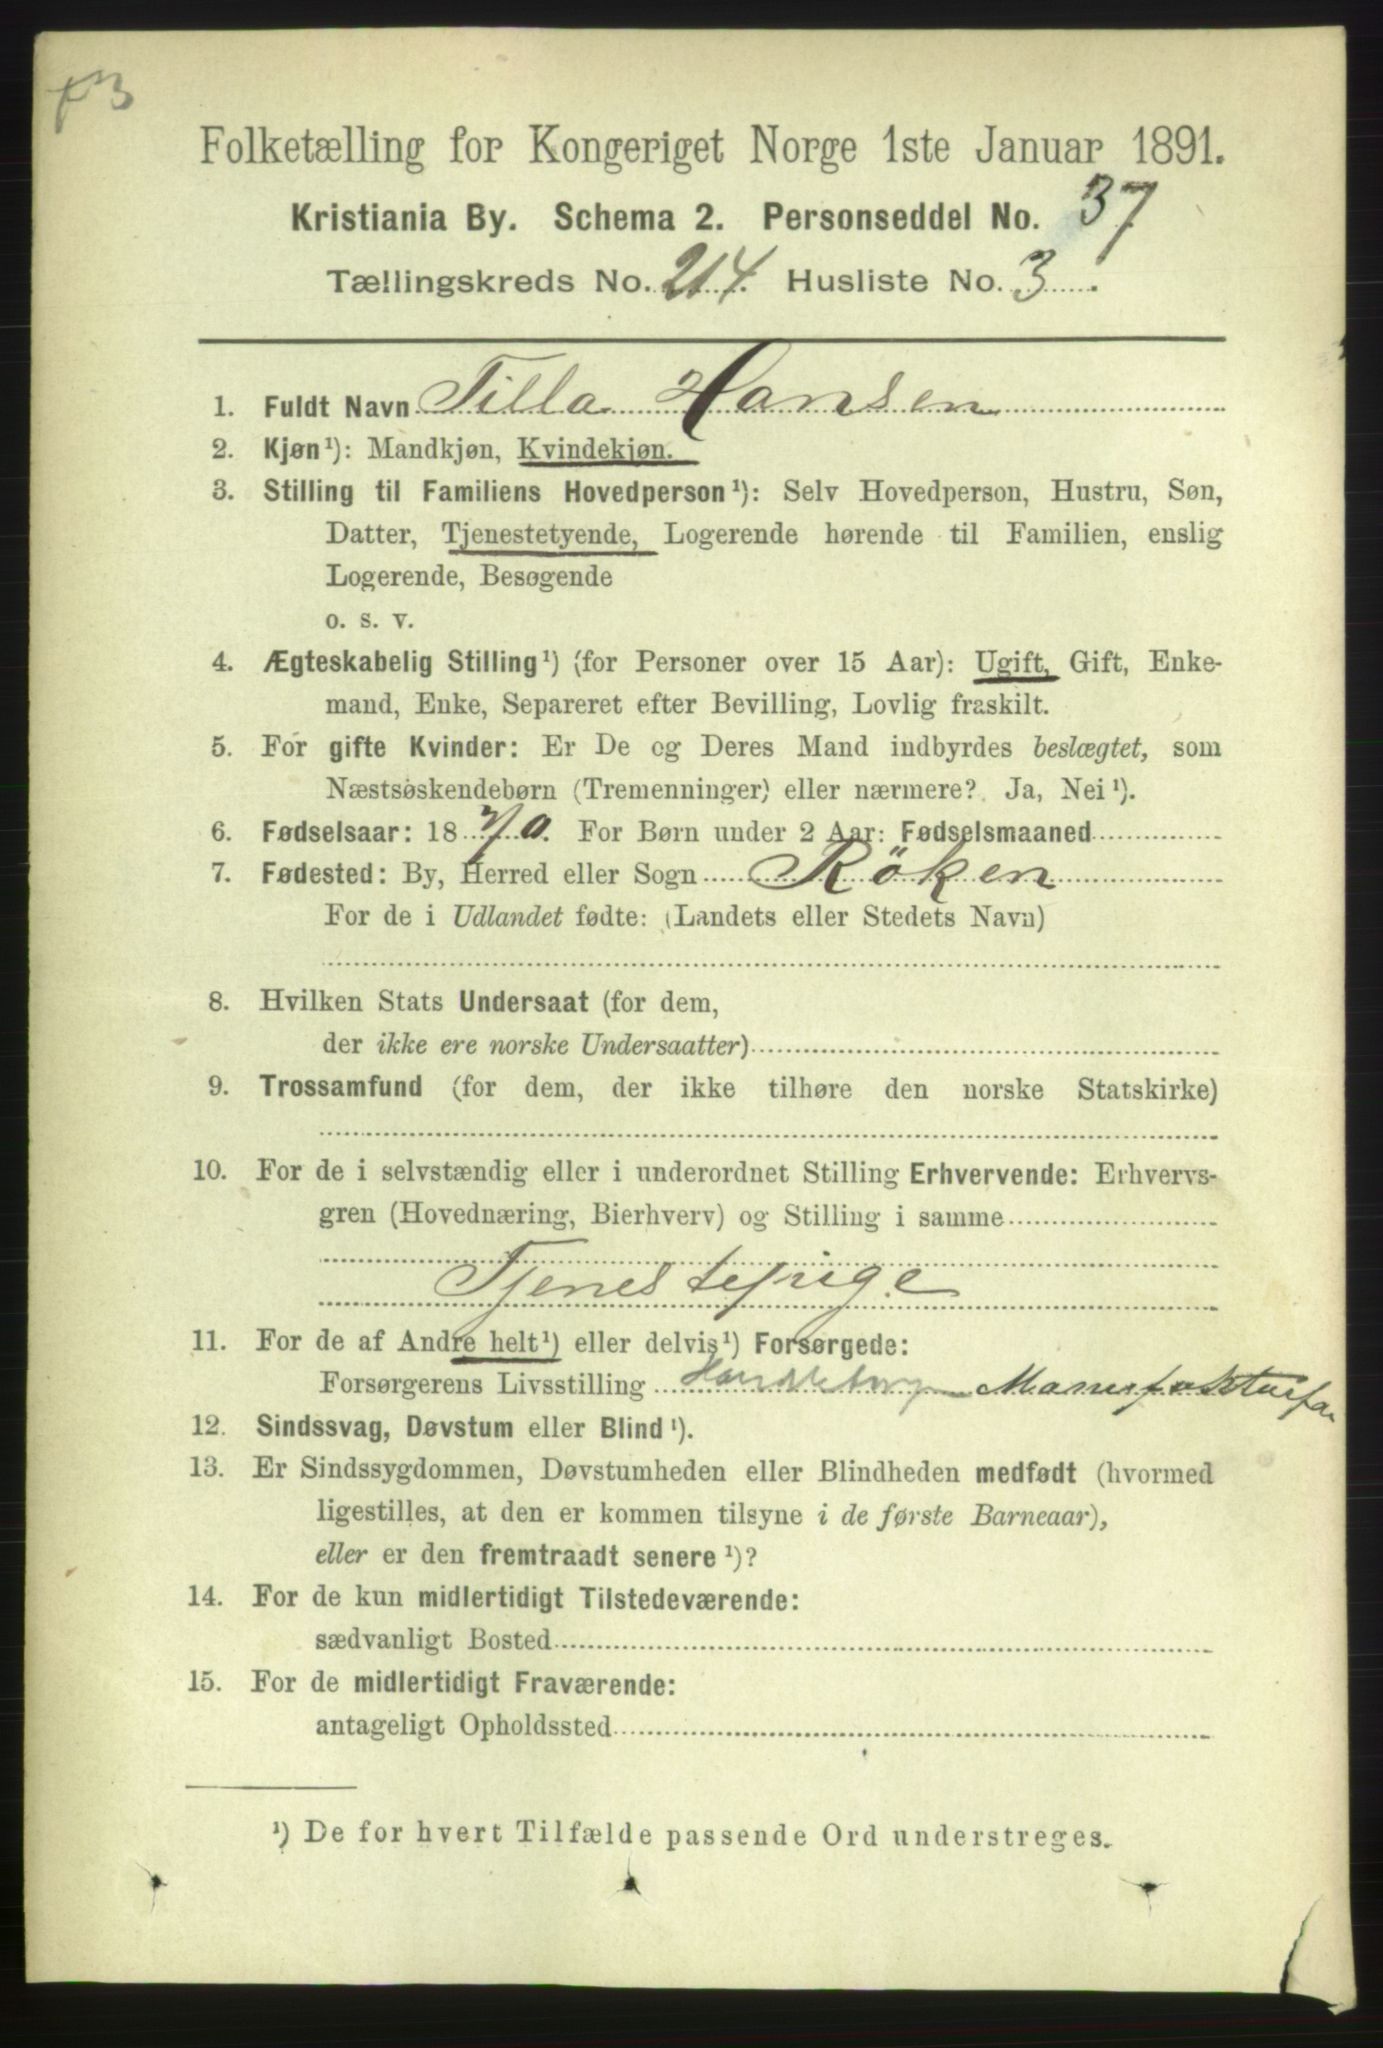 Folketælling for Kongeriget Norge 1ste Januar 1891.
Kristiania By. Schema 2. Personseddel No. 37
Tællingskreds No. 214. Husliste No. 3.
1. Fuldt Navn Tilla Hansen
2. Kjøn¹): Mandkjøn, Kvindekjøn.
3. Stilling til Familiens Hovedperson¹): Selv Hovedperson, Hustru, Søn,
Datter, Tjenestetyende, Logerende hørende til Familien, enslig
Logerende, Besøgende
o. s. v.
4. Ægteskabelig Stilling¹) (for Personer over 15 Aar): Ugift, Gift, Enke-
mand, Enke, Separeret efter Bevilling, Lovlig fraskilt.
5. For gifte Kvinder: Er De og Deres Mand indbyrdes beslægtet, som
Næstsøskendebørn (Tremenninger) eller nærmere? Ja, Nei¹).
6. Fødselsaar: 1870. For Børn under 2 Aar: Fødselsmaaned
7. Fødested: By, Herred eller Sogn Röken
For de i Udlandet fødte: (Landets eller Stedets Navn)
8. Hvilken Stats Undersaat (for dem,
der ikke ere norske Undersaatter)
9. Trossamfund (for dem, der ikke tilhøre den norske Statskirke)
10. For de i selvstændig eller i underordnet Stilling Erhvervende: Erhvervs-
gren (Hovednæring, Bierhverv) og Stilling i samme
Tjenestepige
11. For de af Andre helt¹) eller delvis¹) Forsørgede:
Forsørgerens Livsstilling Manufakturfa
12. Sindssvag, Døvstum eller Blind¹).
13. Er Sindssygdommen, Døvstumheden eller Blindheden medfødt (hvormed
ligestilles, at den er kommen tilsyne i de første Barneaar),
eller er den fremtraadt senere¹)?
14. For de kun midlertidigt Tilstedeværende:
sædvanligt Bosted
15. For de midlertidigt Fraværende:
antageligt Opholdssted
¹) De for hvert Tilfælde passende Ord understreges.